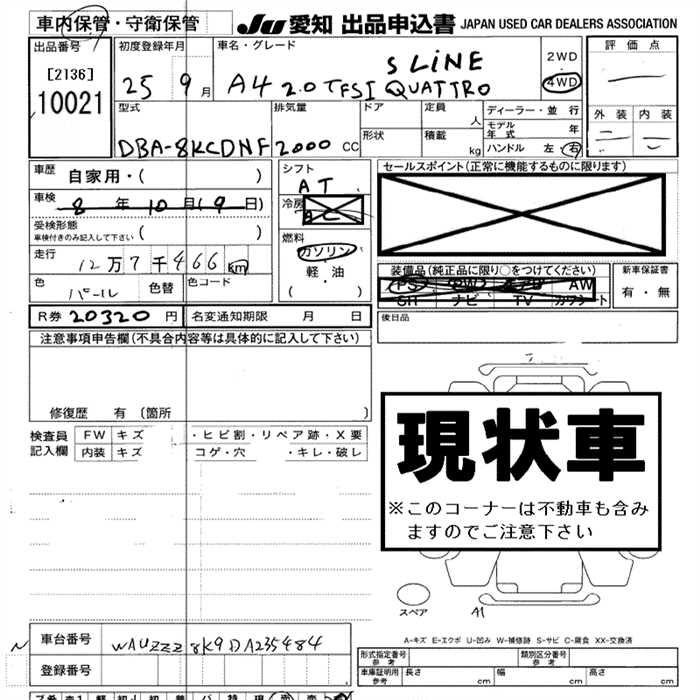 車内保管・守衛保管 JU 愛知 出品申込書 JAPAN USED CAR DEALERS ASSOCIATION
出品番号 [2136] 10021
初度登録年月 25 9 月
車名・グレード A4 2.0 TFSI S LiNE QUATTRO
2WD
4WD
評価点
外装 内装
型式 DBA-8KCDNF
排気量 2000 CC
ドア
形状
定員 人
積載 kg
ディーラー・並行
モデル年式 年
ハンドル 左 右
車歴 自家用・( )
車検 8 年 10 月 (9 日)
受検形態
車検付きのみ記入して下さい ( )
走行 12万7千466 km
色 パール 色替 色コード
シフト AT
冷房 AC
燃料
ガソリン
軽・油
( ・ )
セールスポイント(正常に機能するものに限ります)
装備品(純正品に限り○をつけてください)
PS PW エアB AW
SH ナビ TV カワシート
新車保証書
有・無
R券 20320 円 名変通知期限 月 日
後日品
注意事項申告欄(不具合内容等は具体的に記入して下さい)
修復歴 有 (箇所 )
検査員記入欄
FW キズ ・ヒビ割・リペア跡・X要
内装 キズ コゲ・穴 ・キレ・破レ
現状車
※このコーナーは不動車も含み
ますのでご注意下さい
スペア
A1
A-キズ E-エクボ U-凹み W-補修跡 S-サビ C-腐食 XX-交換済
車台番号 WAUZZZ8K9DA235484
登録番号
形式指定番号 参考
類別区分番号 参考
車庫証明用 参考 長さ cm 幅 cm 高さ cm